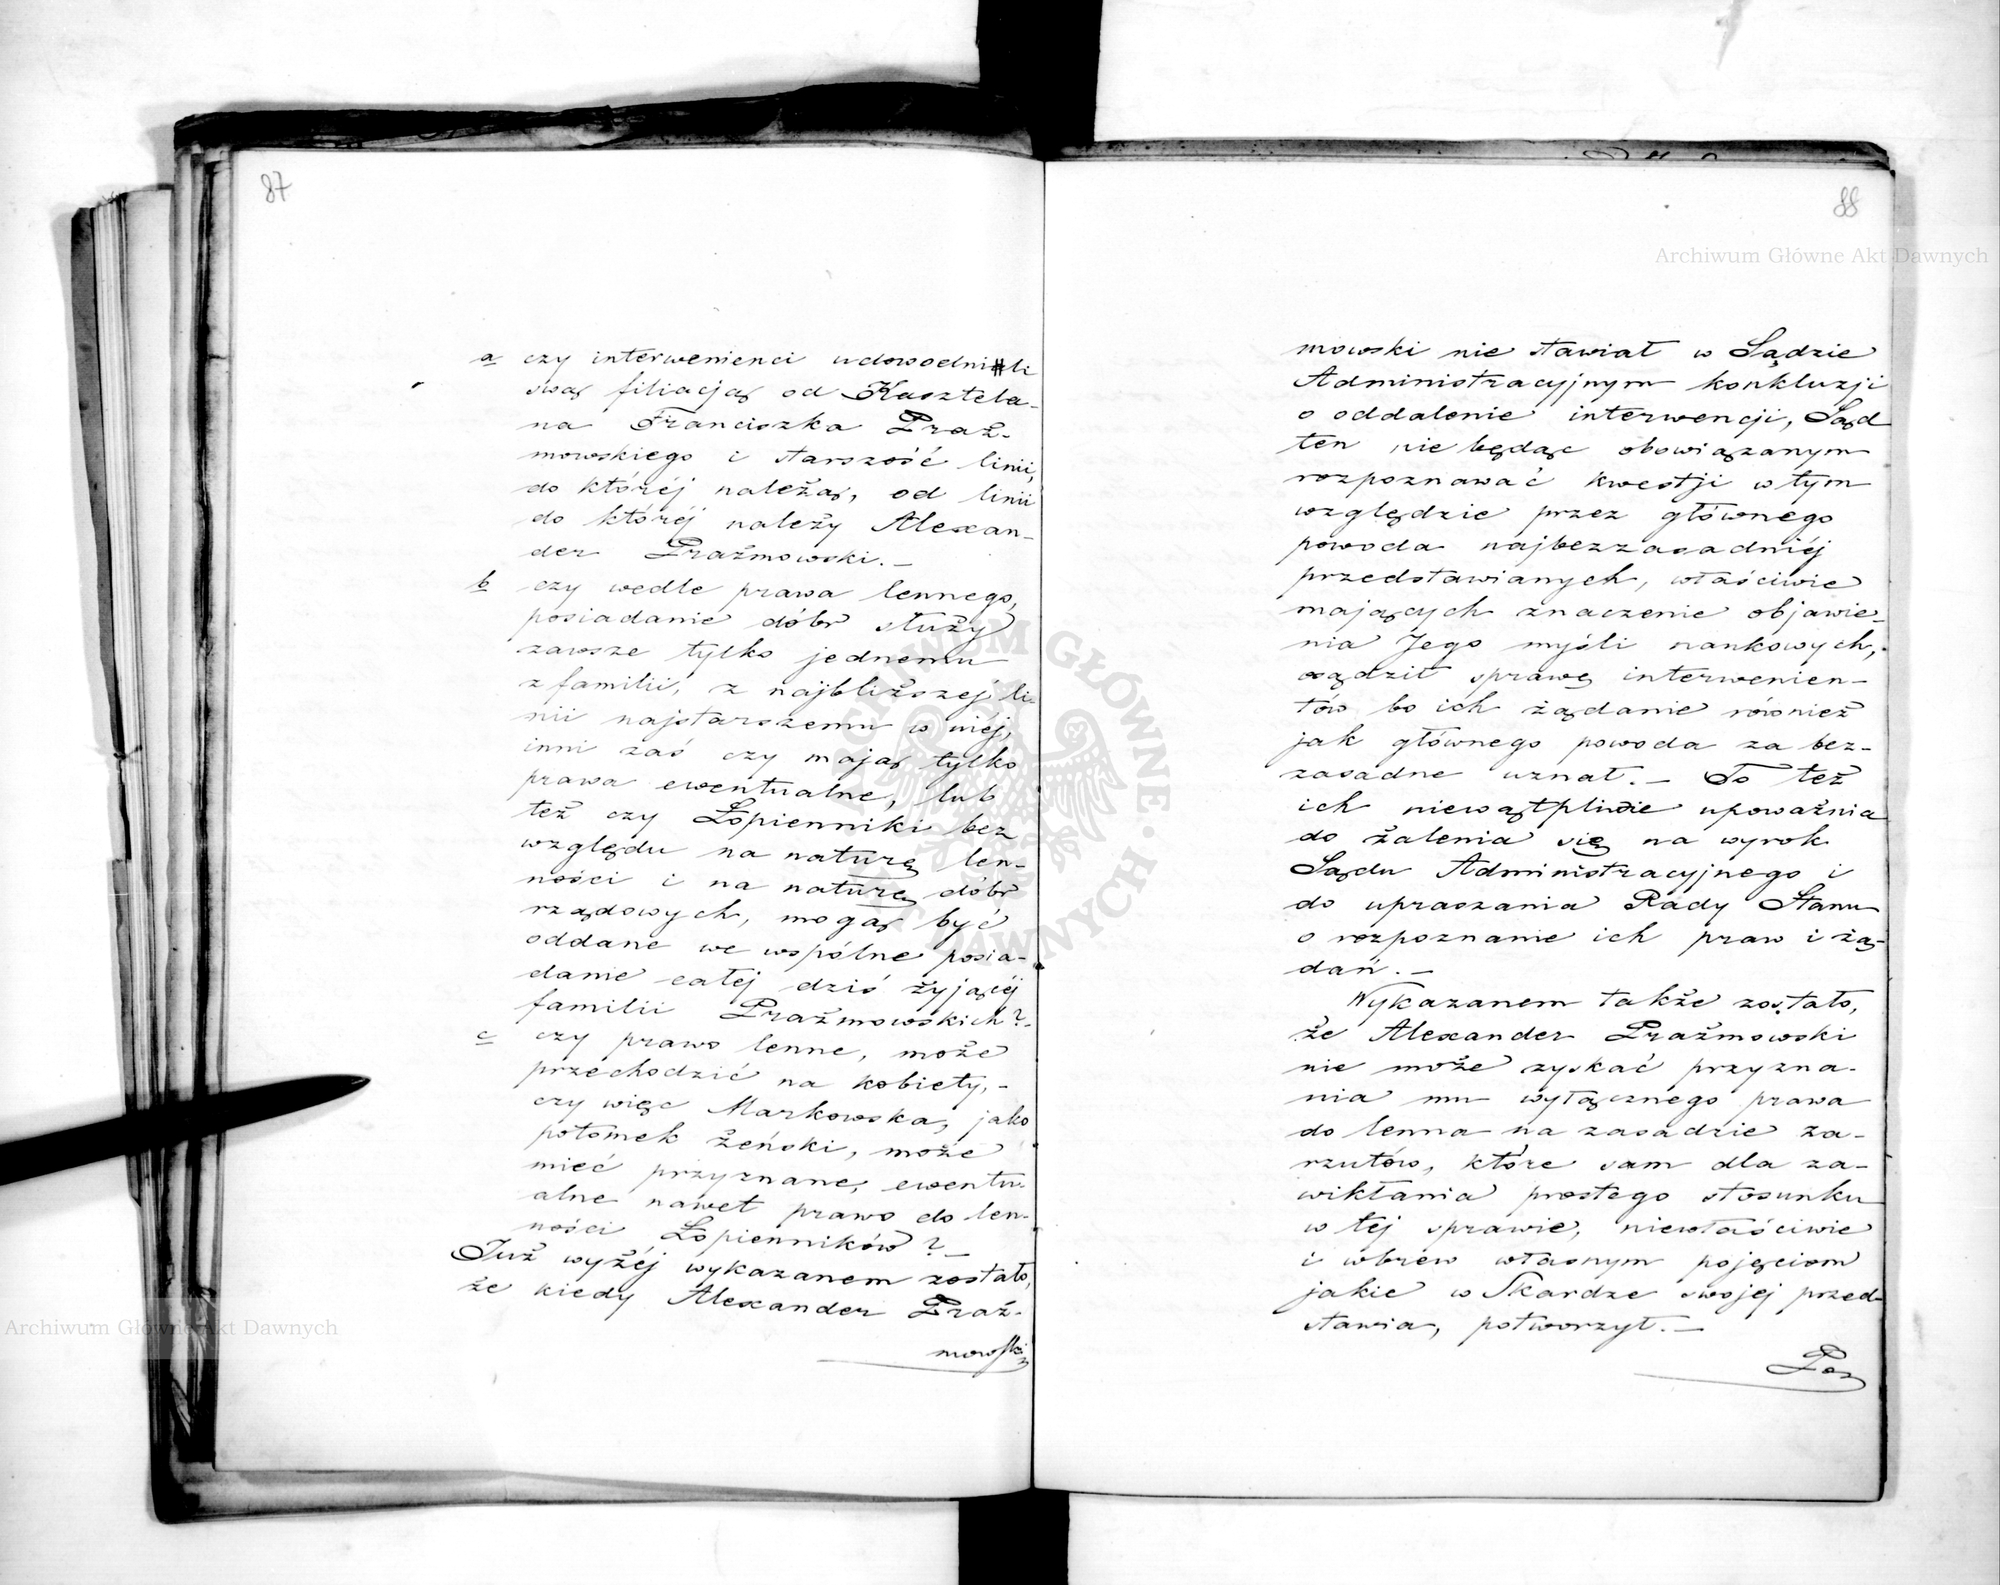 87
a czy interwenienci udowodnili
swą filiacją od Kasztela-
na Franciszka Praż-
mowskiego i starszość linii,
do któréj należą, od linii
do któréj należy Alexan-
der Prażmowski.—
b czy wedle prawa lennego,
posiadanie dóbr służy
zawsze tylko jednemu
z familii, z najbliższej li-
nii najstarszemu w niéj,
inni zaś czy mają tylko
prawa ewentualne, lub
też czy Łopienniki bez
względu na naturę len-
ności i na naturę dóbr
rządowych, mogą być
oddane we wspólne posia-
danie całej dziś żyjącéj
familii Prażmowskich?-
c czy prawo lenne, może
przechodzić na kobiety,-
czy więc Markowska, jako
potomek żeński, może
mieć przyznane, ewentu-
alne nawet prawo do len-
ności Łopienników?—
Już wyżéj wykazanem zostało,
że kiedy Alexander Praż-
mowski
88
mowski nie stawiał w Sądzie
Administracyjnym konkluzji
o oddalenie interwencji, Sąd
ten nie będąc obowiązanym
rozpoznawać kwestji w tym
względzie przez głównego
powoda najbezzasadniéj
przedstawianych, właściwie
mających znaczenie objawie-
nia Jego myśli naukowych,
osądził sprawę interwenien-
tów bo ich żądanie również
jak głównego powoda za bez-
zasadne uznał.— To też
ich niewątpliwie upoważnia
do żalenia się na wyrok
Sądu Administracyjnego i
do upraszania Rady Stanu
o rozpoznanie ich praw i żą-
dań.—
Wykazanem także zostało,
że Alexander Prażmowski
nie może zyskać przyzna-
nia mu wyłącznego prawa
do lenna na zasadzie za-
rzutów, które sam dla za-
wikłania prostego stosunku
w tej sprawie, niewłaściwie
i wbrew własnym pojęciom
jakie w Skardze swojej przed-
stawia, potworzył.—
Archiwum Główne Akt Dawnych
Archiwum Główne Akt Dawnych
ARCHIWUM GŁÓWNE AKT DAWNYCH